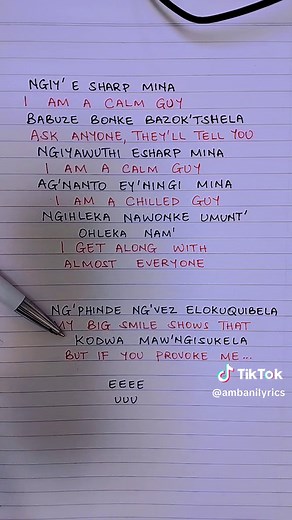 NGIY' E SHARP MINA
I AM A CALM GUY
BABUZE BONKE BAZOK'TSHELA
ASK ANYONE, THEY'LL TELL YOU
NGIYAWUTHI ESHARP MINA
I AM A CALM GUY
AG'NANTO EY'NINGI MINA
I AM A CHILLED GUY
NGIHLEKA NAWONKE UMUNT'
OHLEKA NAM'
I GET ALONG WITH
ALMOST EVERYONE
NG'PHINDE NG'VEZ ELOKUQUIBELA
MY BIG SMILE SHOWS THAT
KODWA MAW'NGISUKELA
BUT IF YOU PROVOKE ME...
EEEE
UUU
TikTok
@ambanilyrics